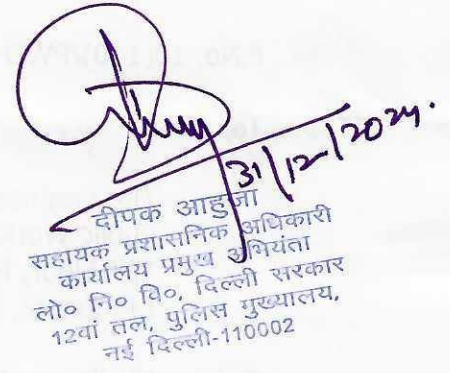 31/12/2024.
दीपक आहुजा
सहायक प्रशासनिक अधिकारी
कार्यालय प्रमुख अभियंता
लो० नि० वि०, दिल्ली सरकार
12वां तल, पुलिस मुख्यालय,
नई दिल्ली-110002